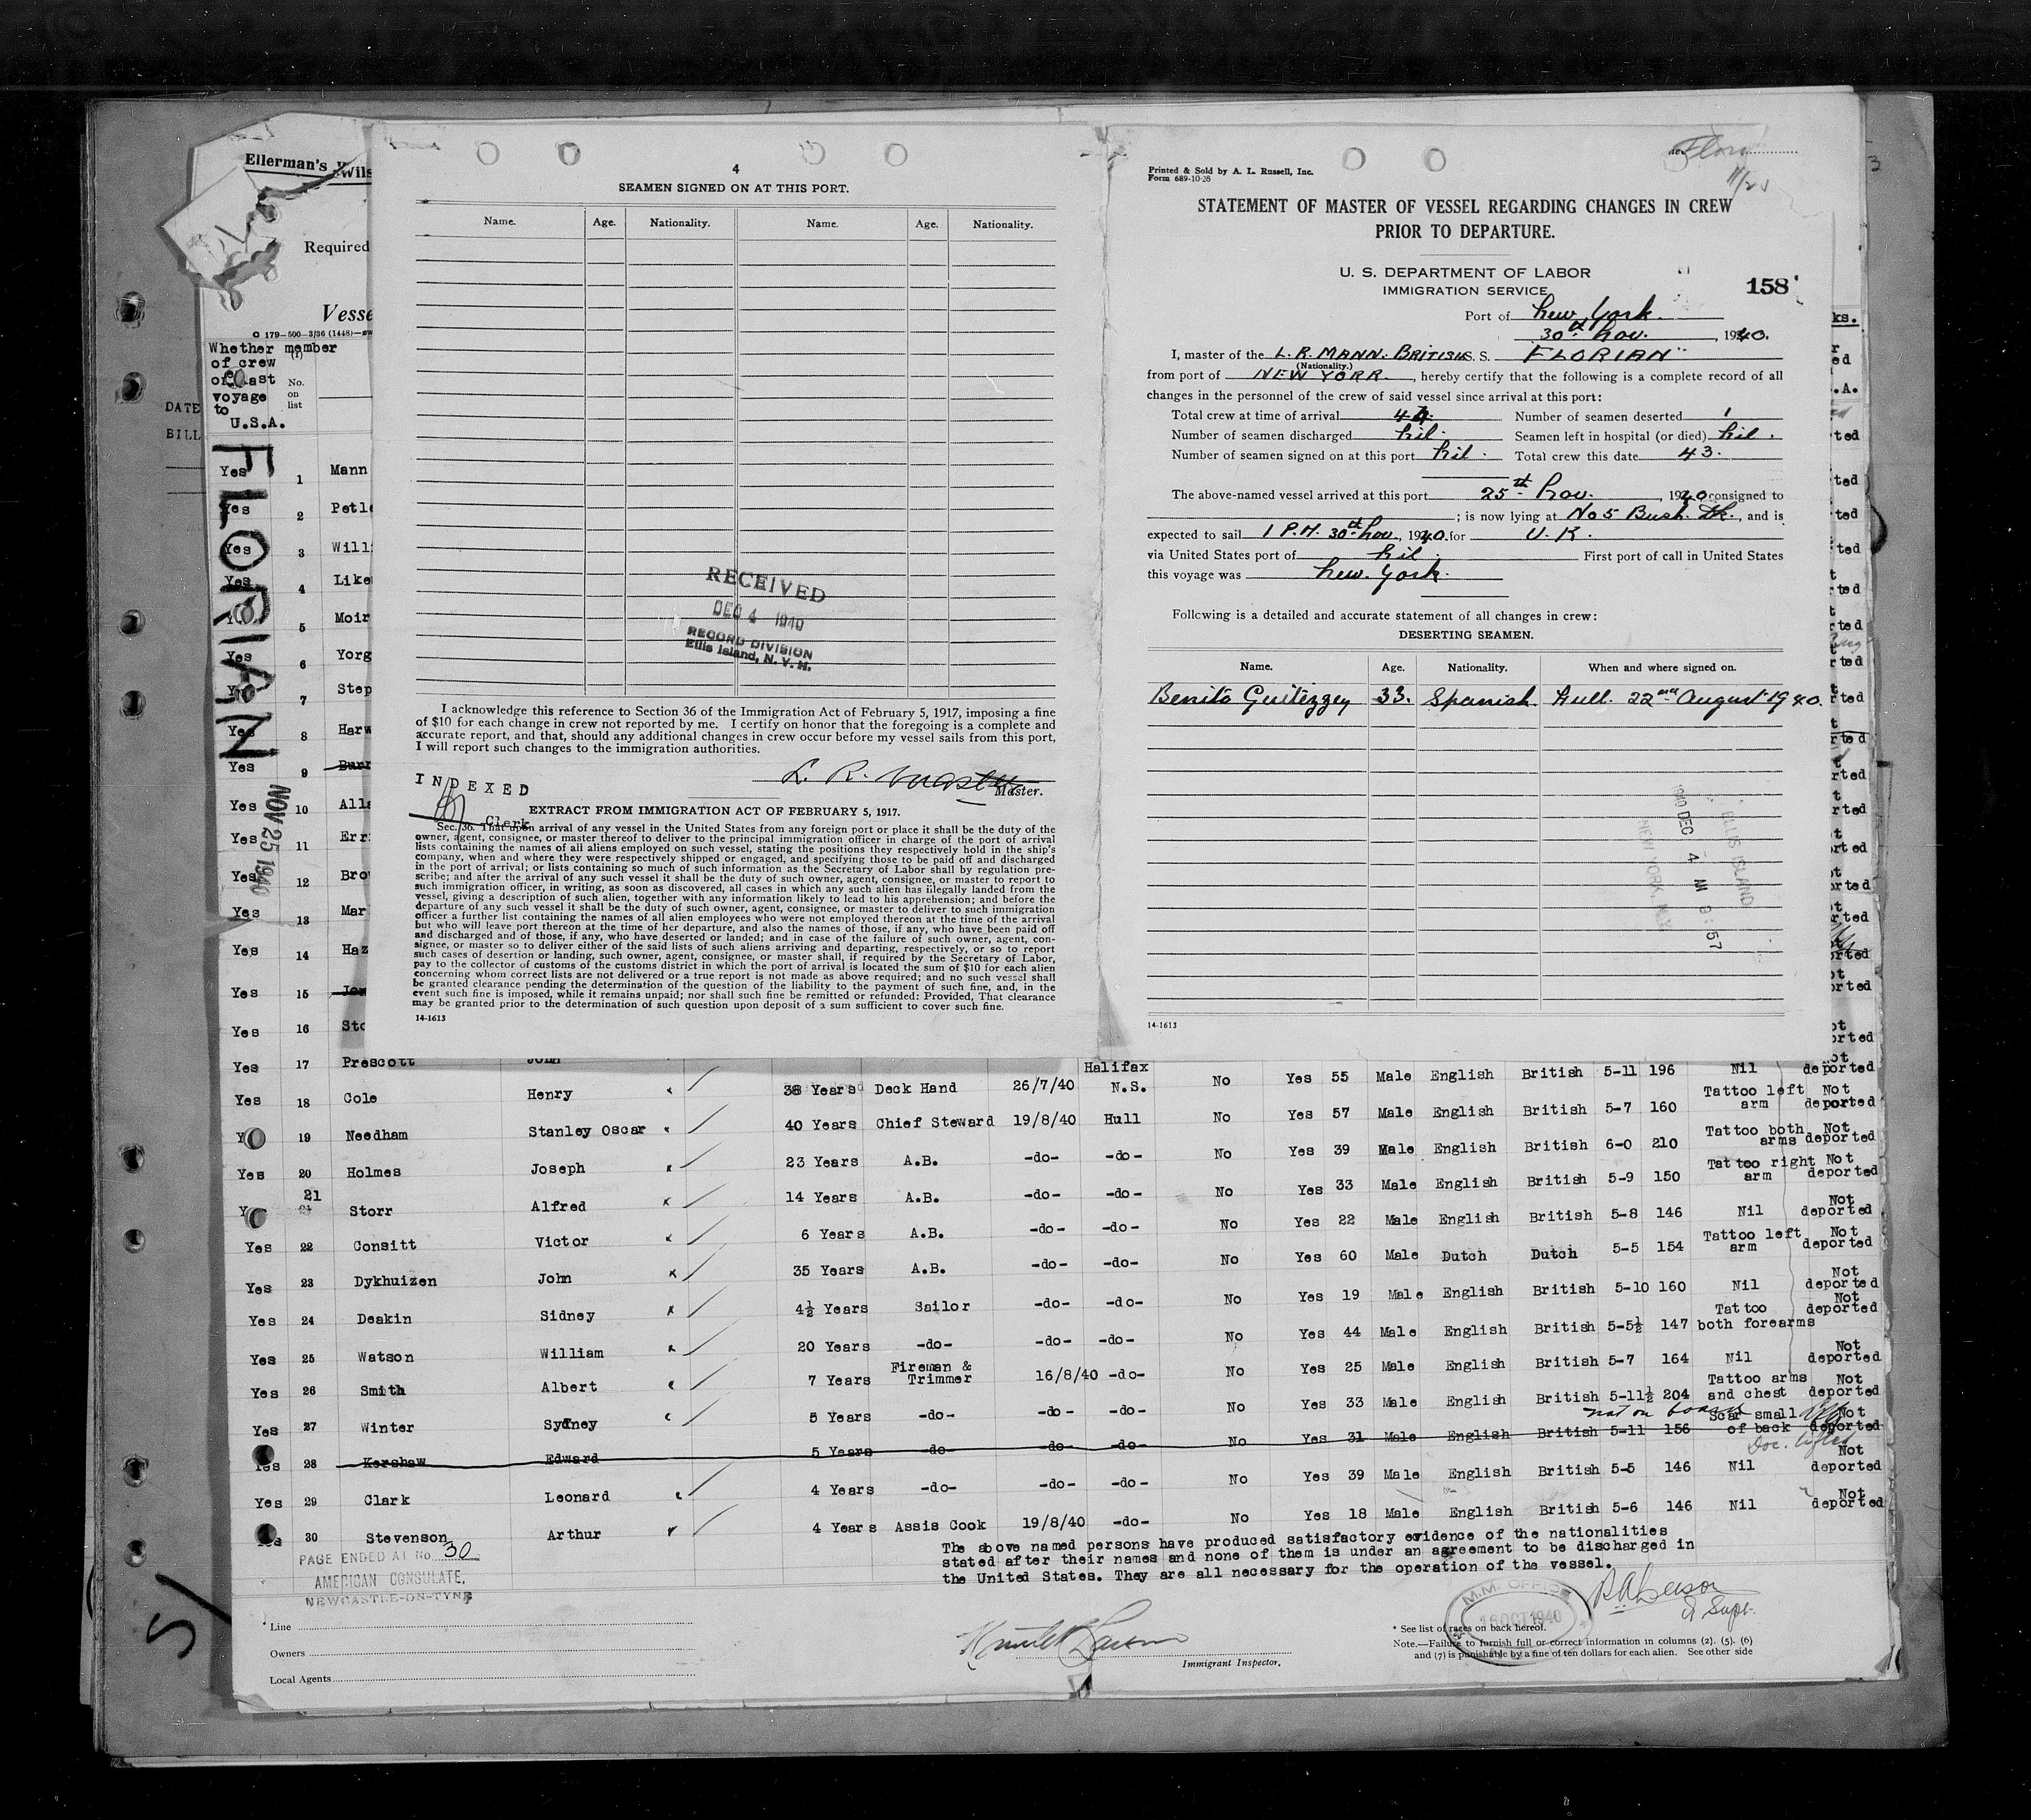 Ellerman's Wils
Required
Vesse
C 179-500-3/36 (1448)-
Whether member
of crew
on last
voyage
to
U.S.A.
(1)
No.
on
list
DATE
BILL
FLORIAN
NOV 25 1940
Yes 1 Mann
Yes 2 Petle
Yes 3 Willi
Yes 4 Like
5 Moir
Yes 6 Yorg
7 Step
Yes 8 Harw
Yes 9 Burr
Yes 10 Alla
Yes 11 Err
Yes 12 Bro
Yes 13 Mar
Yes 14 Haz
Yes 15 Jon
Yes 16 Sto
4
SEAMEN SIGNED ON AT THIS PORT.
Name. Age. Nationality. Name. Age. Nationality.
RECEIVED
DEC 4 1940
RECORD DIVISION
Ellis Island, N. Y. H.
I acknowledge this reference to Section 36 of the Immigration Act of February 5, 1917, imposing a fine
of $10 for each change in crew not reported by me. I certify on honor that the foregoing is a complete and
accurate report, and that, should any additional changes in crew occur before my vessel sails from this port,
I will report such changes to the immigration authorities.
L. R.
Master.
INDEXED
Clerk
EXTRACT FROM IMMIGRATION ACT OF FEBRUARY 5, 1917.
Sec. 36. That upon arrival of any vessel in the United States from any foreign port or place it shall be the duty of the
owner, agent, consignee, or master thereof to deliver to the principal immigration officer in charge of the port of arrival
lists containing the names of all aliens employed on such vessel, stating the positions they respectively hold in the ship's
company, when and where they were respectively shipped or engaged, and specifying those to be paid off and discharged
in the port of arrival; or lists containing so much of such information as the Secretary of Labor shall by regulation pre-
scribe; and after the arrival of any such vessel it shall be the duty of such owner, agent, consignee, or master to report to
such immigration officer, in writing, as soon as discovered, all cases in which any such alien has illegally landed from the
vessel, giving a description of such alien, together with any information likely to lead to his apprehension; and before the
departure of any such vessel it shall be the duty of such owner, agent, consignee, or master to deliver to such immigration
officer a further list containing the names of all alien employees who were not employed thereon at the time of the arrival
but who will leave port thereon at the time of her departure, and also the names of those, if any, who have been paid off
and discharged and of those, if any, who have deserted or landed; and in case of the failure of such owner, agent, con-
signee, or master so to deliver either of the said lists of such aliens arriving and departing, respectively, or so to report
such cases of desertion or landing, such owner, agent, consignee, or master shall, if required by the Secretary of Labor,
pay to the collector of customs of the customs district in which the port of arrival is located the sum of $10 for each alien
concerning whom correct lists are not delivered or a true report is not made as above required; and no such vessel shall
be granted clearance pending the determination of the question of the liability to the payment of such fine, and, in the
event such fine is imposed, while it remains unpaid; nor shall such fine be remitted or refunded: Provided, That clearance
may be granted prior to the determination of such question upon deposit of a sum sufficient to cover such fine.
14-1613
Flori
11/25
Printed & Sold by A. L. Russell, Inc.
Form 689-10-28
STATEMENT OF MASTER OF VESSEL REGARDING CHANGES IN CREW
PRIOR TO DEPARTURE.
U. S. DEPARTMENT OF LABOR
IMMIGRATION SERVICE
158
Port of New York.
30th Nov. , 1940.
I, master of the L. R. MANN. BRITISH S. S. FLORIAN
(Nationality.)
from port of NEW YORK. , hereby certify that the following is a complete record of all
changes in the personnel of the crew of said vessel since arrival at this port:
Total crew at time of arrival 44. Number of seamen deserted 1
Number of seamen discharged Nil. Seamen left in hospital (or died) Nil.
Number of seamen signed on at this port Nil. Total crew this date 43.
The above-named vessel arrived at this port 25th Nov. , 1940 consigned to
; is now lying at No 5 Bush. Dk. , and is
expected to sail 1 P.M. 30th Nov. , 1940. for U. K.
via United States port of Nil. First port of call in United States
this voyage was New. York.
Following is a detailed and accurate statement of all changes in crew:
DESERTING SEAMEN.
Name. Age. Nationality. When and where signed on.
Benito Guitezzey 33. Spanish. Hull. 22nd August 1940.
1940 DEC 4 AM 9:57
ELLIS ISLAND
NEW YORK, N.Y.
14-1613
Yes 17 Prescott John Halifax
Yes 18 Cole Henry 38 Years Deck Hand 26/7/40 N.S. No Yes 55 Male English British 5-11 196 Nil deported
19 Needham Stanley Oscar 40 Years Chief Steward 19/8/40 Hull No Yes 57 Male English British 5-7 160 Tattoo left arm Not deported
Yes 20 Holmes Joseph 23 Years A.B. -do- -do- No Yes 39 Male English British 6-0 210 Tattoo both arms Not deported
21 Storr Alfred 14 Years A.B. -do- -do- No Yes 33 Male English British 5-9 150 Tattoo right arm Not deported
Yes 22 Consitt Victor 6 Years A.B. -do- -do- No Yes 22 Male English British 5-8 146 Nil Not deported
Yes 23 Dykhuizen John 35 Years A.B. -do- -do- No Yes 60 Male Dutch Dutch 5-5 154 Tattoo left arm Not deported
Yes 24 Deakin Sidney 4½ Years Sailor -do- -do- No Yes 19 Male English British 5-10 160 Nil Not deported
Yes 25 Watson William 20 Years -do- -do- -do- No Yes 44 Male English British 5-5½ 147 Tattoo both forearms Not deported
Yes 26 Smith Albert 7 Years Fireman & Trimmer 16/8/40 -do- No Yes 25 Male English British 5-7 164 Nil Not deported
Yes 27 Winter Sydney 5 Years -do- -do- -do- No Yes 33 Male English British 5-11½ 204 Tattoo arms and chest Not deported
not on board
Yes 28 Kershaw Edward 5 Years -do- -do- -do- No Yes 31 Male English British 5-11 156 Scar small of back Not deported
Doc. lifted
Yes 29 Clark Leonard 4 Years -do- -do- -do- No Yes 39 Male English British 5-5 146 Nil Not deported
30 Stevenson Arthur 4 Years Assis Cook 19/8/40 -do- No Yes 18 Male English British 5-6 146 Nil Not deported
The above named persons have produced satisfactory evidence of the nationalities
stated after their names and none of them is under an agreement to be discharged in
the United States. They are all necessary for the operation of the vessel.
PAGE ENDED AT No. 30
AMERICAN CONSULATE,
NEWCASTLE-ON-TYNE
M.M. OFFICE
16 OCT 1940
Supt.
* Line
Owners
Local Agents
Immigrant Inspector.
* See list of races on back hereof.
Note.—Failure to furnish full or correct information in columns (2). (5). (6)
and (7) is punishable by a fine of ten dollars for each alien. See other side